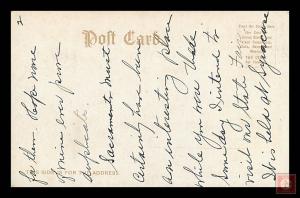 2
Post Card
for them. Hope none
of mine ever prove
duplicate.
Sacramento must
certainly have been
an interesting place
while you were there
Some day I intend to
visit our State Fair
It is held at Syracuse
THIS SIDE IS FOR THE ADDRESS.